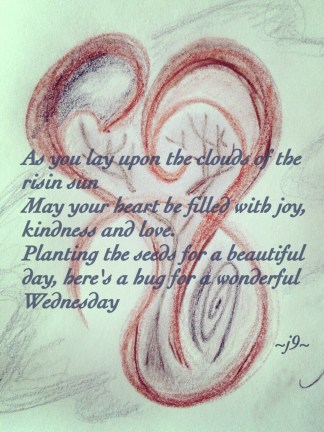 As you lay upon the clouds of the
risin sun
May your heart be filled with joy,
kindness and love.
Planting the seeds for a beautiful
day, here's a hug for a wonderful
Wednesday
~j9~